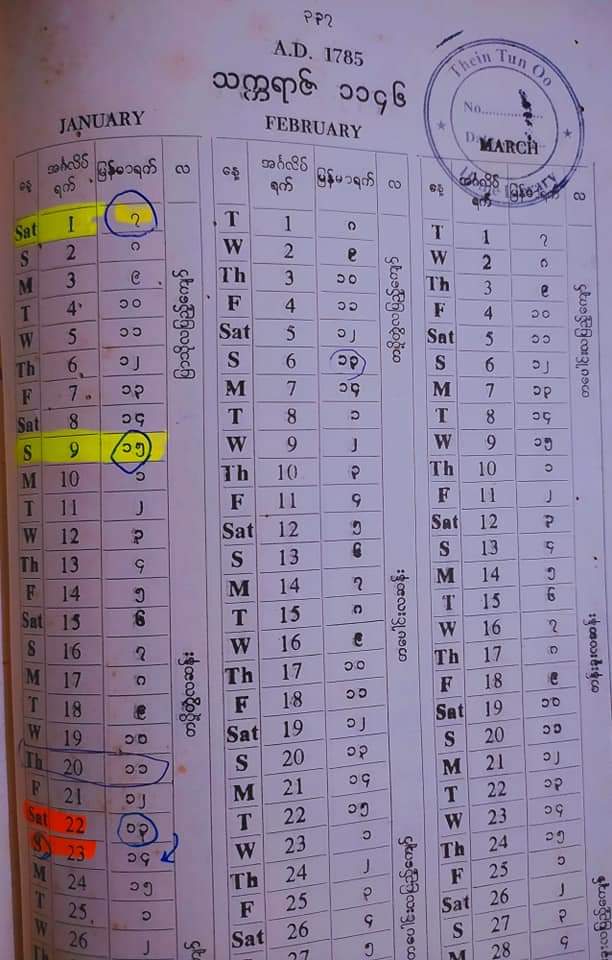 ၃၃၇
A.D. 1785
သက္ကရာဇ် ၁၁၄၆
Thein Tun Oo
No.
JANUARY FEBRUARY MARCH
နေ့ အင်္ဂလိပ်ရက် မြန်မာရက် လ နေ့ အင်္ဂလိပ်ရက် မြန်မာရက် လ နေ့ အင်္ဂလိပ်ရက် မြန်မာရက် လ
Sat 1 ၇ T 1 ၈ T 1 ၇
S 2 ၈ W 2 ၉ W 2 ၈
M 3 ၉ Th 3 ၁၀ Th 3 ၉
T 4 ၁၀ F 4 ၁၁ F 4 ၁၀
W 5 ၁၁ Sat 5 ၁၂ Sat 5 ၁၁
Th 6 ၁၂ S 6 ၁၃ S 6 ၁၂
F 7 ၁၃ M 7 ၁၄ M 7 ၁၃
Sat 8 ၁၄ T 8 ၁ T 8 ၁၄
S 9 ၁၅ W 9 ၂ W 9 ၁၅
M 10 ၁ Th 10 ၃ Th 10 ၁
T 11 ၂ F 11 ၄ F 11 ၂
W 12 ၃ Sat 12 ၅ Sat 12 ၃
Th 13 ၄ S 13 ၆ S 13 ၄
F 14 ၅ M 14 ၇ M 14 ၅
Sat 15 ၆ T 15 ၈ T 15 ၆
S 16 ၇ W 16 ၉ W 16 ၇
M 17 ၈ Th 17 ၁၀ Th 17 ၈
T 18 ၉ F 18 ၁၁ F 18 ၉
W 19 ၁၀ Sat 19 ၁၂ Sat 19 ၁၀
Th 20 ၁၁ S 20 ၁၃ S 20 ၁၁
F 21 ၁၂ M 21 ၁၄ M 21 ၁၂
Sat 22 ၁၃ T 22 ၁၅ T 22 ၁၃
S 23 ၁၄ W 23 ၁ W 23 ၁၄
M 24 ၁၅ Th 24 ၂ Th 24 ၁၅
T 25 ၁ F 25 ၃ F 25 ၁
W 26 ၂ Sat 26 ၄ Sat 26 ၂
Th 27 ၅ S 27 ၃
M 28 ၄